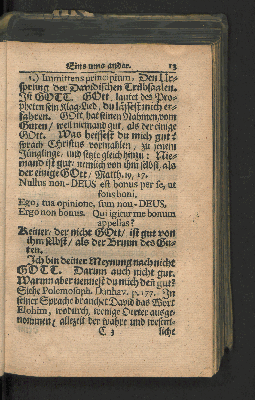 Eins ums ander. 13
1.) Immittens principium. Den Ur-
sprung der Davidischen Trübsaalen.
Ist GOTT. GOtt, lautet des Pro-
pheten sein Klag-Lied, du lässest mich er-
fahren. GOtt, hat seinen Nahmen vom
Guten/ weil niemand gut, als der einige
GOtt. Was heissest du mich gut?
sprach Christus vormahlen, zu jenem
Jünglinge, und setzte gleich hinzu: Nie-
mand ist gut, nemlich von ihm selbst, als
der einige GOtt/ Matth. 19, 17.
Nullus non-DEUS est bonus per se, ut
fons boni.
Ego, tua opinione, sum non-DEUS.
Ergo non bonus. Qui igitur me bonum
appellas?
Keiner, der nicht GOtt/ ist gut von
ihm selbst/ als der Brunn des Gu-
ten.
Ich bin deiner Meynung nach nicht
GOTT. Darum auch nicht gut.
Warum aber nennest du mich deñ gut?
Siehe Polemosoph. Danhav. p. 177. In
seiner Sprache brauchet David das Wort
Elohim, wodurch, wenige Oerter ausge-
nommen/ allezeit der wahre und wesent-
C 3 liche